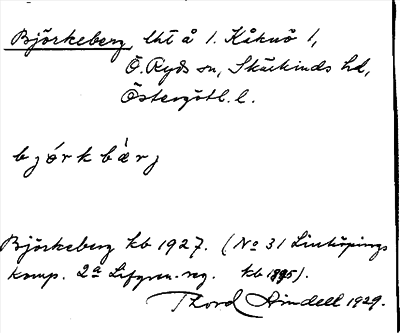 Björkeberg, lht å 1. Kåknö 1,
Ö. Ryds sn, Skärkinds hd,
Östergötl. l.
bjórkbàrj
Björkeberg kb 1927. (No 31 Linköpings
komp. 2a Lifgren. reg. kb 1895).
Thord Lindell 1929.